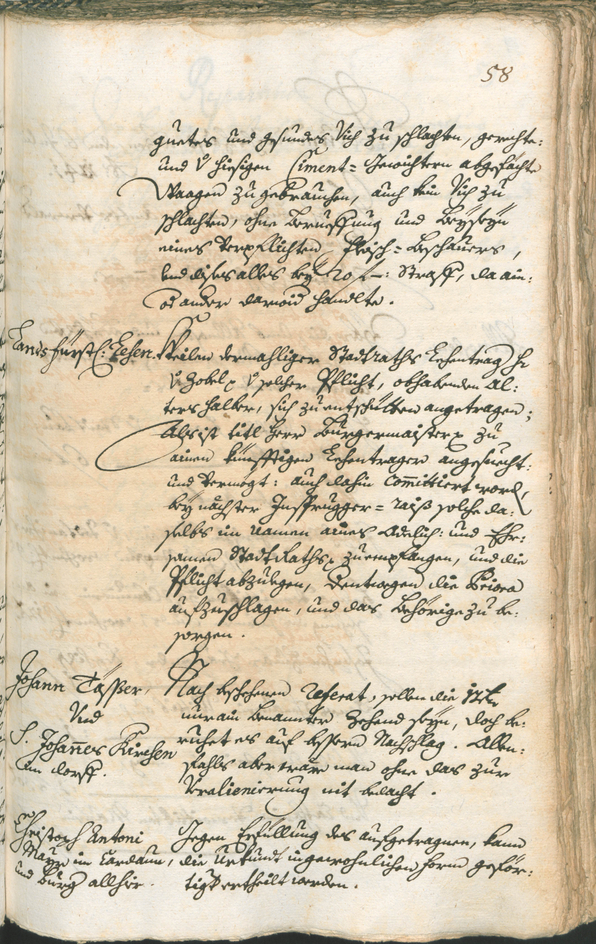 58
guetes und gesundes Vich zu schlachten, gerechte:
und V hiesigen Ciment= Gewichtern abgefächte
Waagen zu gebrauchen, auch kein Vich zu
schlachten, ohne Berueffung und Beyseyn
eines verpflichten Fleisch= Beschauers,
und dises alles bey 20 f Straff, da ain:
od ander darwid handlte.
Landsfürstl: Lehen.
Weilen dermahliger Stadtraths Lehentrag H
V Zobel V solcher Pflicht, obhabenden Al:
ters halber, sich zu entschütten angetragen;
Als ist titl Herr Burgermaister zu
ainen künfftigen Lehentrager angesuecht:
und vermögt: auch dahin committiert word,
bey nächster Insprugger= raiß solche da:
selbs im Namen aines Adelich: und Ehr:
samen Stadt Raths zu empfangen, und die
Pflicht abzulegen, dentwegen die Priora
aufzuschlagen, und das Behörige zu be:
sorgen.
Johann Täsßer,
Vnd
S. Johannes Kirchen
im dorff.
Nach beschehenen Referat, sollen die
nurain benannter Zehend seyn, doch be:
ruhet es auf bessern Nachschlag. Allen:
fahls aber wäre man ohne das zur
Veralienierung nit bedacht.
Christoph Antoni
Mayr im Cardaun,
und Burg allhier.
Gegen Erfüllung des aufgetragnen, kann
die Urkundt in gewohnlichen form geför:
tigt ertheilt werden.